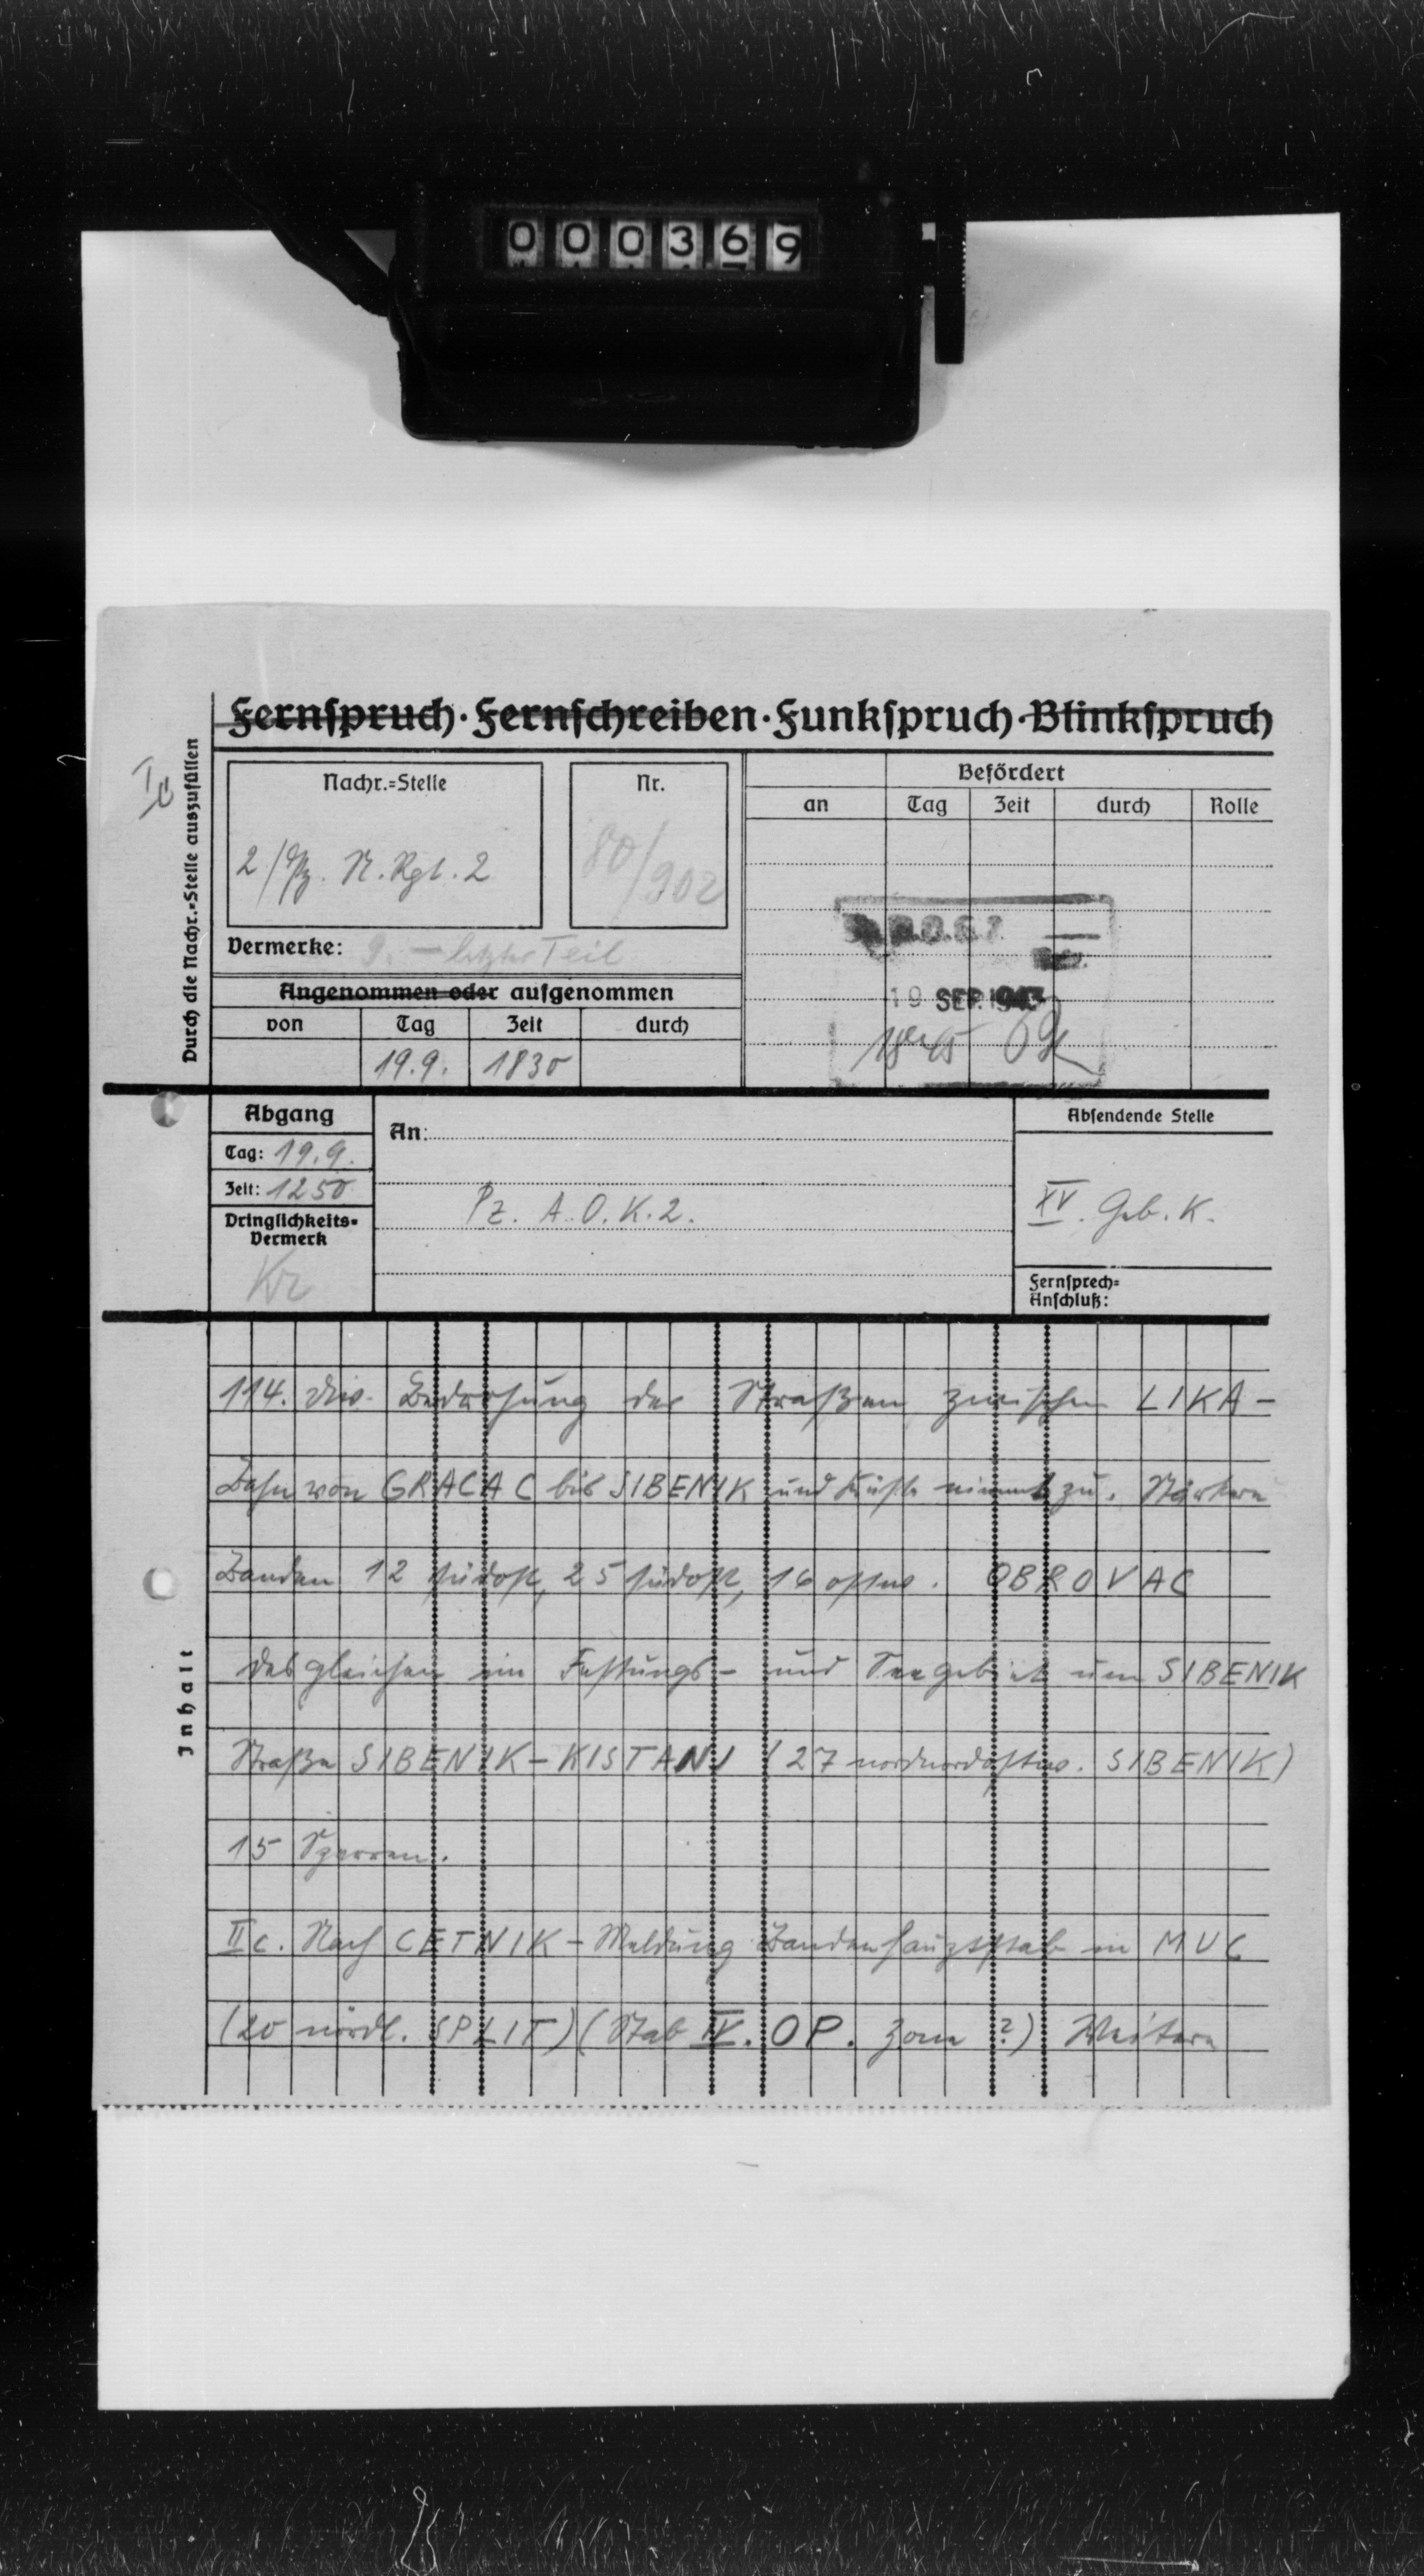 000369
Fernspruch · Fernschreiben · Funkspruch · Blinkspruch
Durch die Nachr.=Stelle auszufüllen
Ic
Nachr.=Stelle
2/Pz. N. Rgt. 2
Nr.
80/902
Befördert
an Tag Zeit durch Rolle
Vermerke: letzter Teil
Angenommen oder aufgenommen
von Tag Zeit durch
19.9. 1830
19 SEP. 1943
Abgang
Tag: 19.9.
Zeit: 1250
Dringlichkeits=
Vermerk
Kr
An:
Pz. A.O.K. 2.
Absendende Stelle
XV. Geb. K.
Fernsprech=
Anschluß:
Inhalt
114. Div. Bedrohung der Straßen zwischen LIKA-
Bahn von GRACAC bis SIBENIK und Küste nimmt zu. Stärkere
Banden 12 südost, 25 südost, 16 ostnw. OBROVAC
desgleichen im Festungs- und Seegebiet um SIBENIK
Straße SIBENIK-KISTANJ (27 nordnordostw. SIBENIK)
15 Sperren.
IIc. Nach CETNIK-Meldung Bandenhauptstab in MUC
(20 nördl. SPLIT) (Stab IV. OP. Zone ?) Weitere